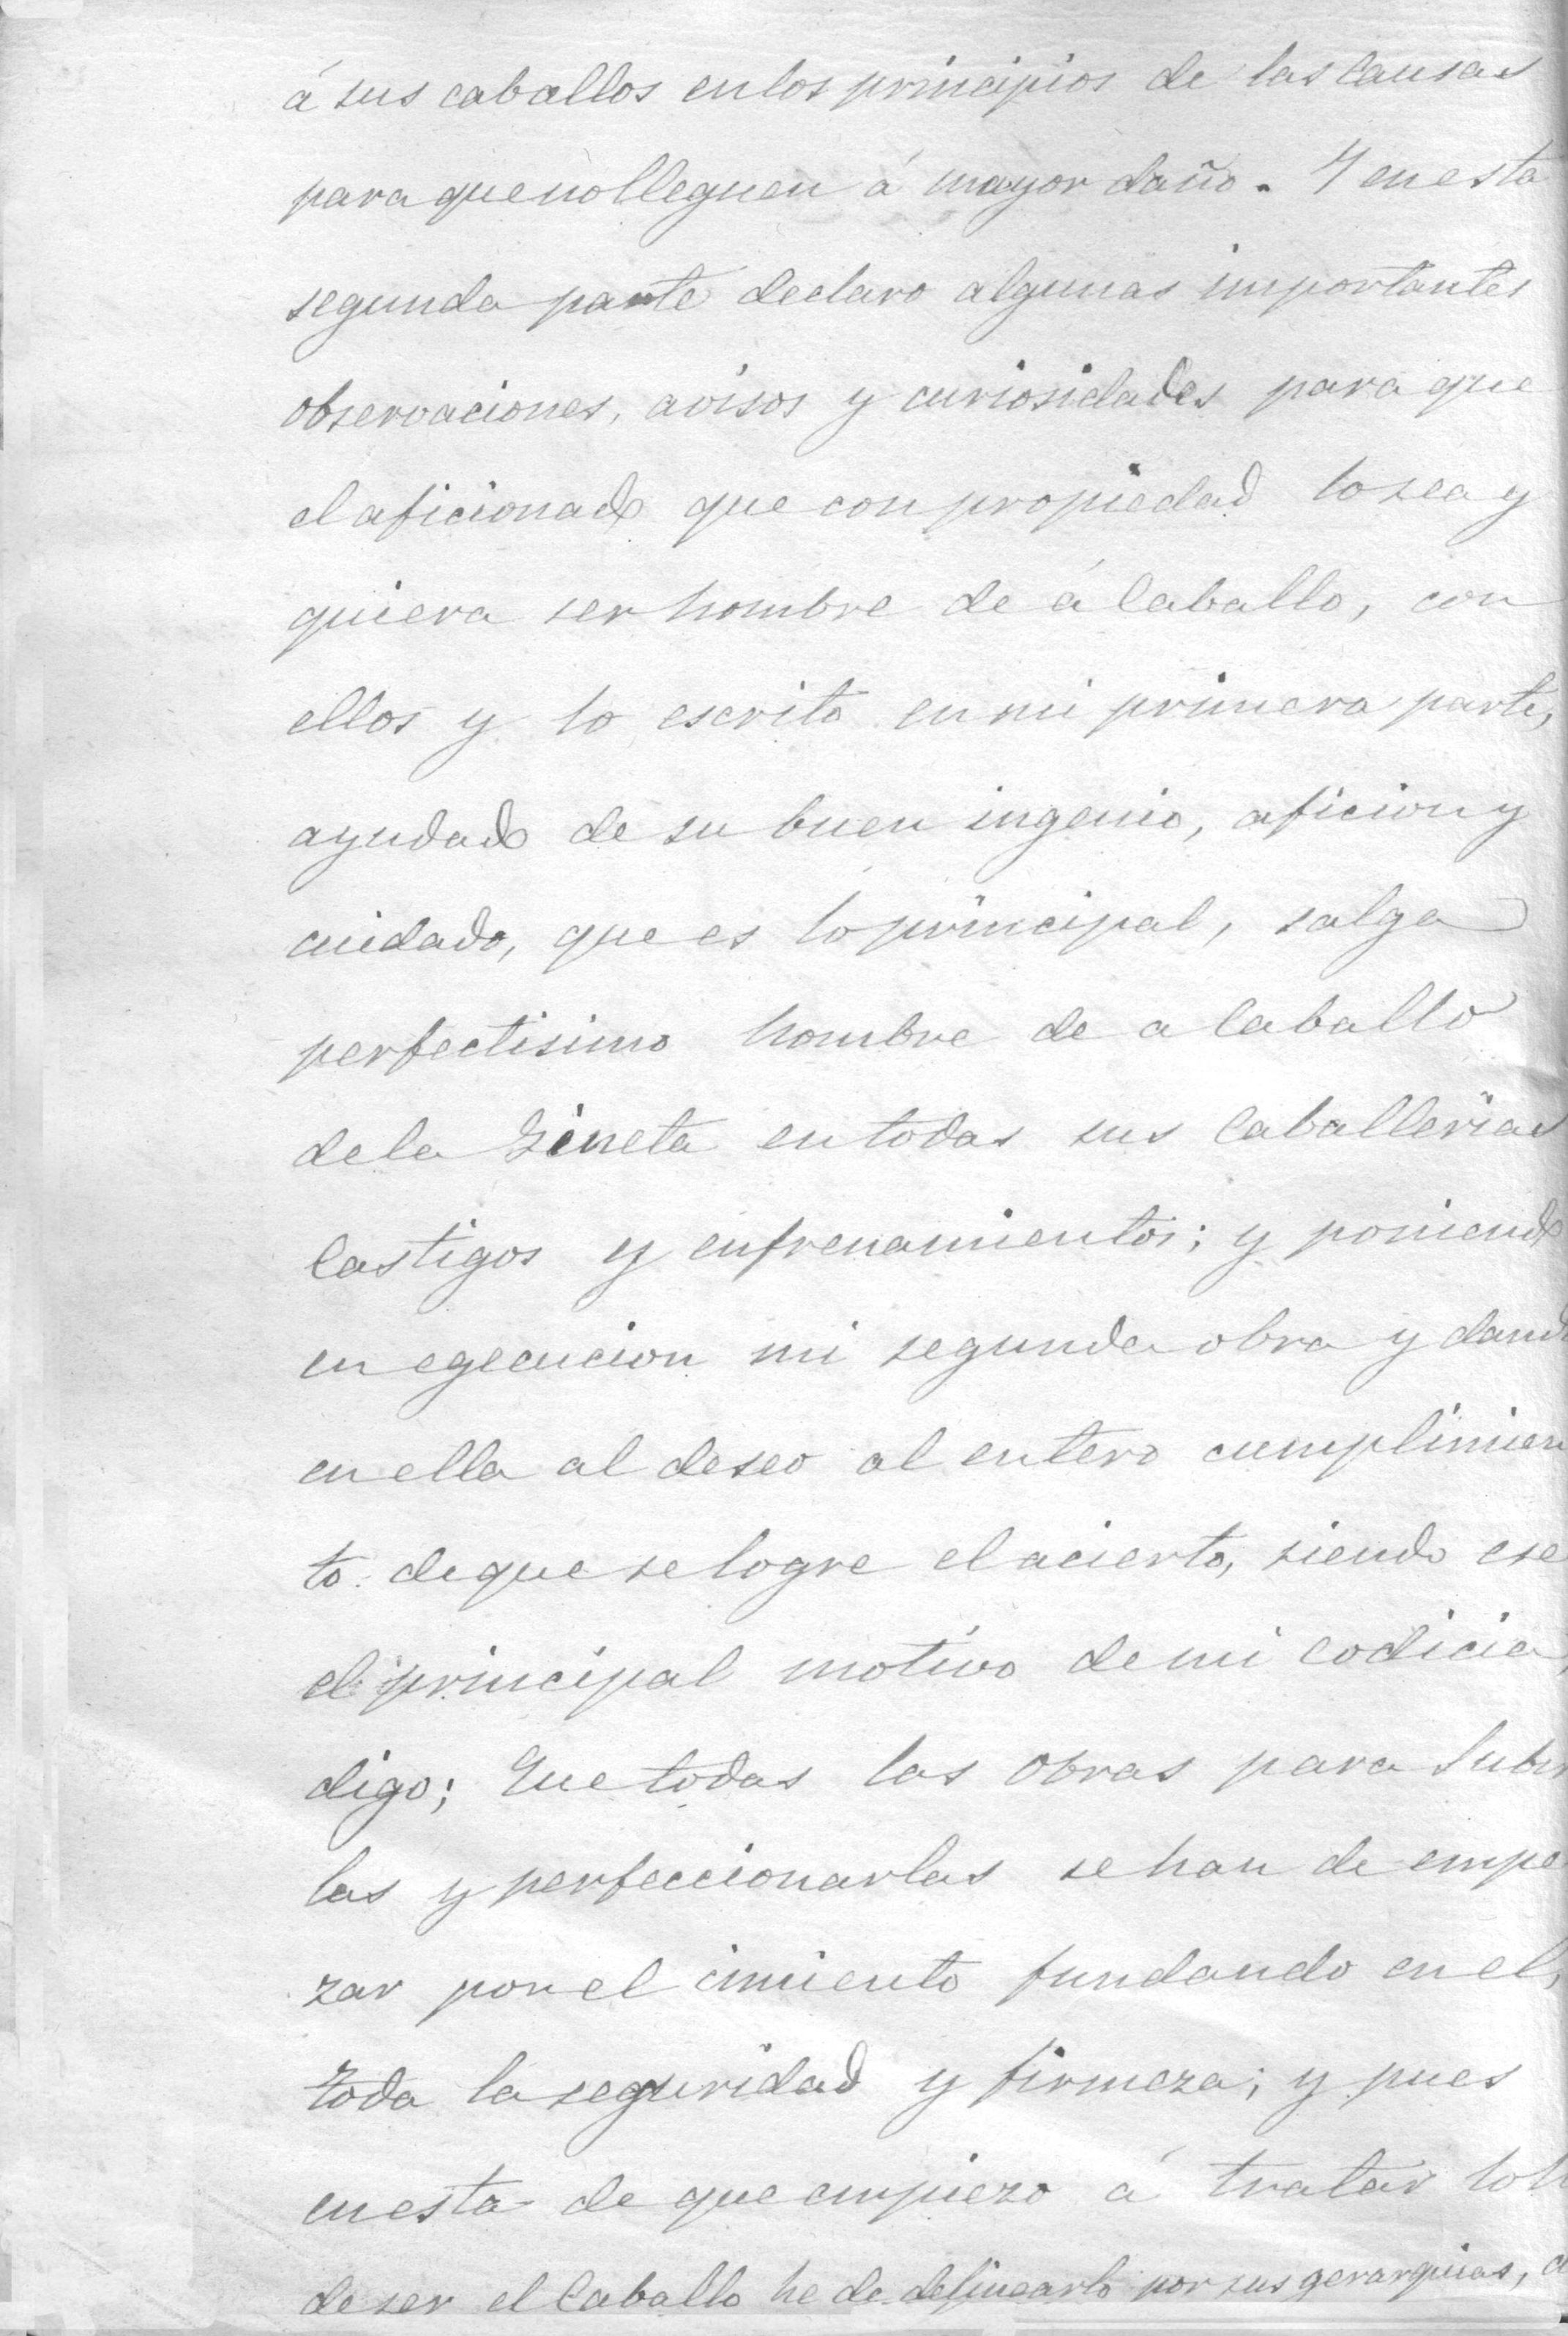 á sus caballos en los principios de las Causas
para que no lleguen á mayor daño. Y en esta
segunda parte declaro algunas importantes
observaciones, avisos y curiosidades para que
el aficionado que con propiedad lo sea y
quiera ser hombre de á Caballo, con
ellos y lo escrito en mi primera parte,
ayudado de su buen ingenio, aficion y
cuidado, que es lo principal, salga
perfectisimo hombre de a Caballo
de la Gineta en todas sus Caballerias
Castigos y enfrenamientos; y poniendo
en egecucion mi segunda obra y dand
en ella al deseo al entero cumplimien
to de que se logre el acierto, siendo ese
el principal motivo de mi Codicia
digo; Que todas las obras para Subir
las y perfeccionarlas se han de empe
zar por el cimiento fundando en el,
toda la seguridad y firmeza; y pues
en esta de que empiezo á tratar lo h
de ser el Caballo he de delinearlo por sus gerarquias,